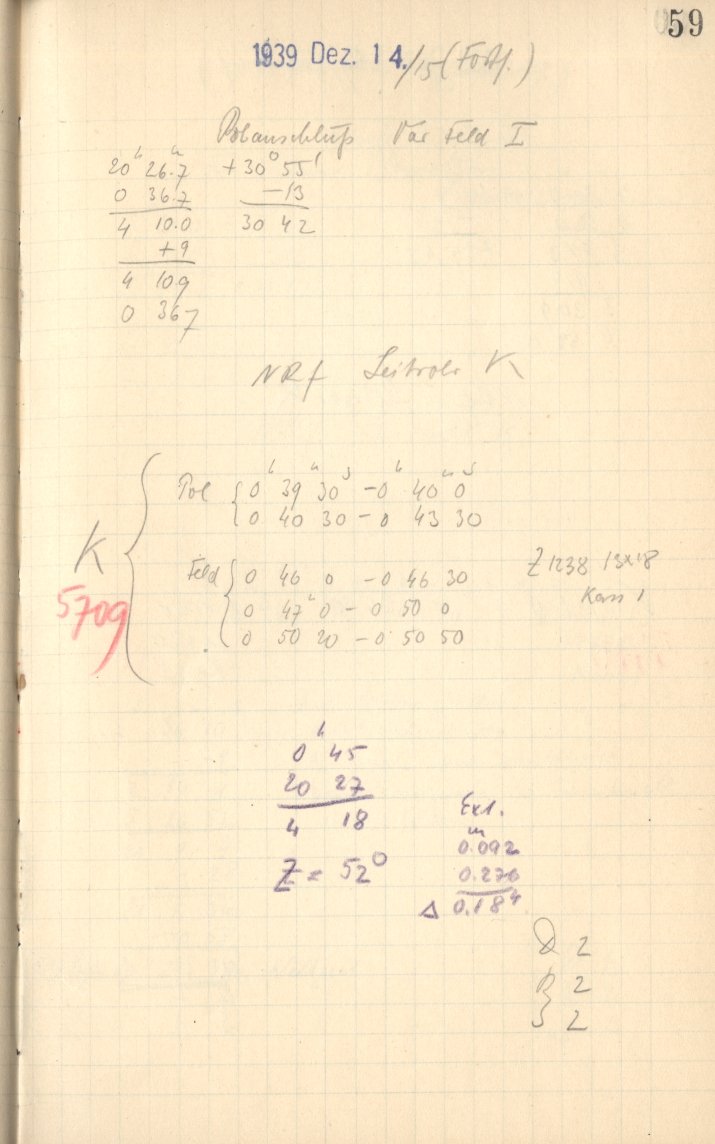 59
1939 Dez. 14./15 (Forts.)
Polanschluß Var Feld I
20ʰ 26.7ᵐ +30° 55'
0 36.7 −13
4 10.0 30 42
+9
4 10.9
0 36.7
NRf Leitrohr K
Pol { 0ʰ 39ᵐ 30ˢ − 0ʰ 40ᵐ 0ˢ
0 40 30 − 0 43 30
K
5709
Feld { 0 46 0 − 0 46 30
0 47ᵐ 0 − 0 50 0
0 50 20 − 0 50 50
Z 1238 13x18
Kass 1
0ʰ 45
20 27
4 18
Z = 52°
Ext.
0.092
0.276
Δ 0.184
D 2
R 2
S 2